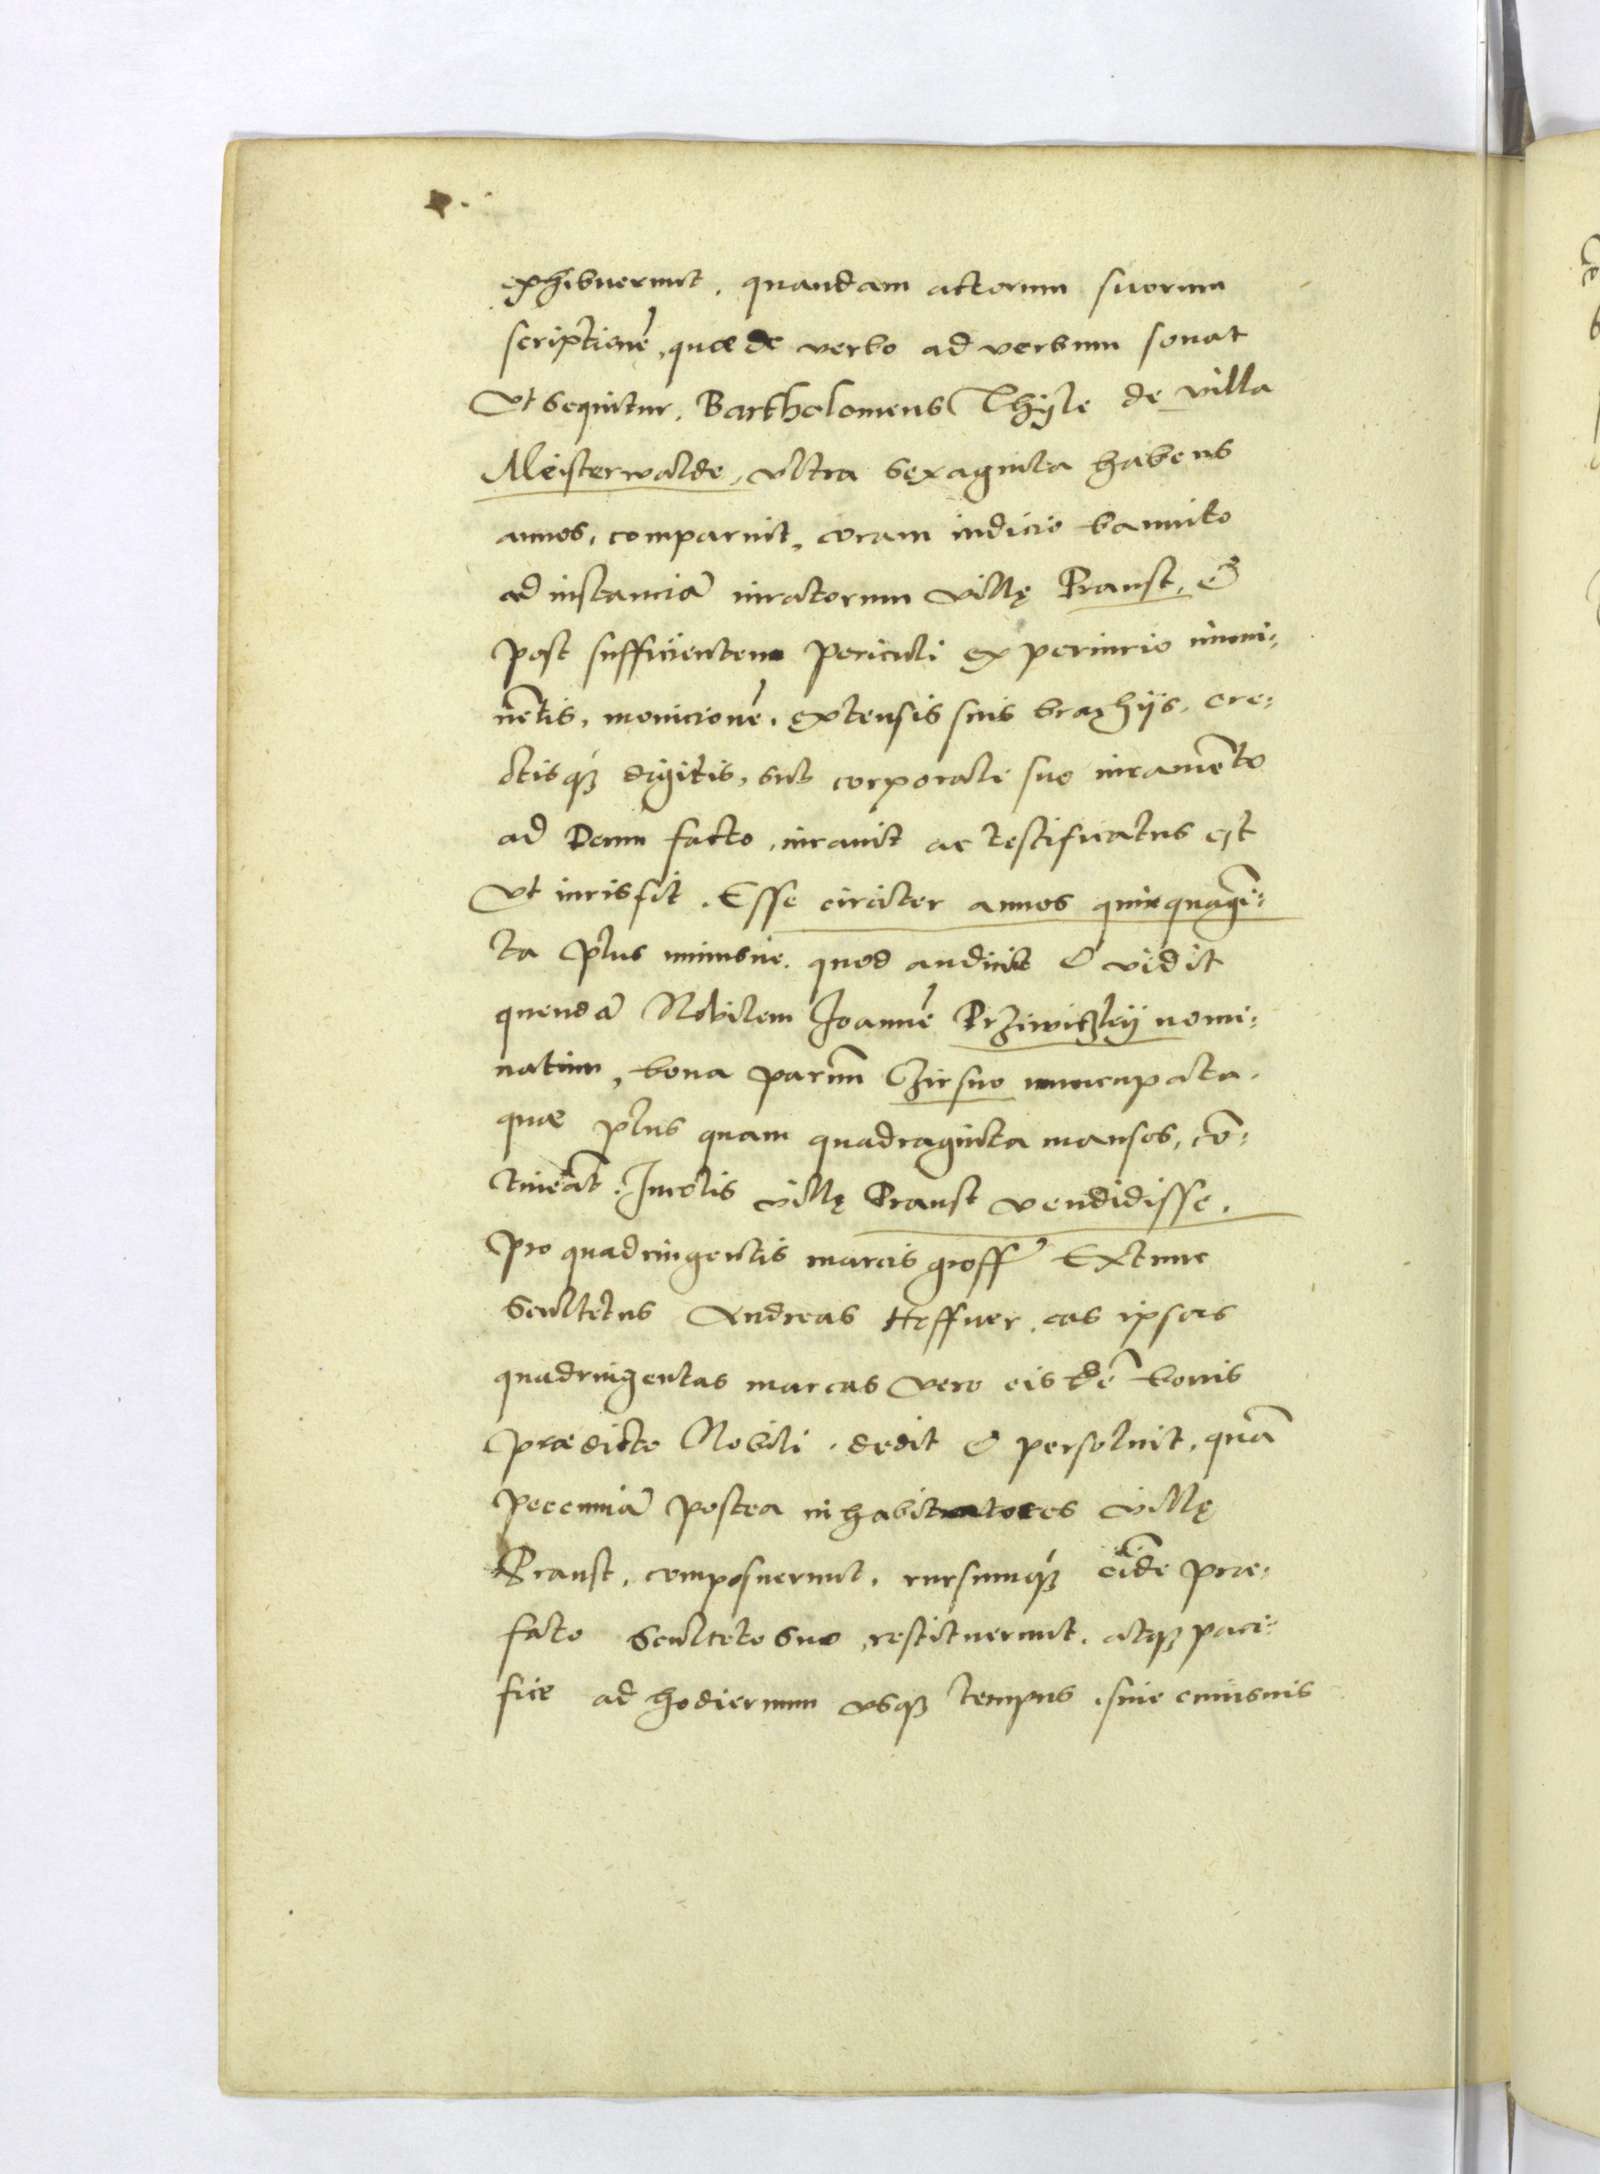 exhibuerunt, quandam actorum suorum
scriptionē, quae de verbo ad verbum sonat
Vt sequitur. Bartholomeus Thyle de villa
Meisterwalde, vltra sexaginta habens
annos, comparuit, coram iudicio bannito
ad instanciā iuratorum villę Pranst, &
post sufficientem periculi ex periurio immi:
nētis, monicionē, extensis suis brachijs, ere:
ctisq3 digitis, sub corporali suo iuramēto
ad Deum facto, iurauit ac testificatus est
Vt iuris sit. Esse circiter annos quinquagī:
ta plus minusue, quod audiuit & vidit
quendā Nobilem Joannē Przewitzky nomi:
natum, bona parum Czirsno nuncupata,
quae plus quam quadraginta mansos, cō:
tineāt. Incolis villę Pranst vendidisse,
pro quadringentis marcis groſſ Ex tunc
Scultetus Andreas Heffner, eas ipsas
quadringentas marcas vero eisdē bonis
praedicto Nobili, dedit & persoluit, quā
pecuniā postea inhabitatores villę
Pranst, composuerunt, rursumq3 eidē prae:
fato Sculteto suo, restituerunt, atq3 paci:
fice ad hodiernum vsq3 tempus, sine cuiusuis